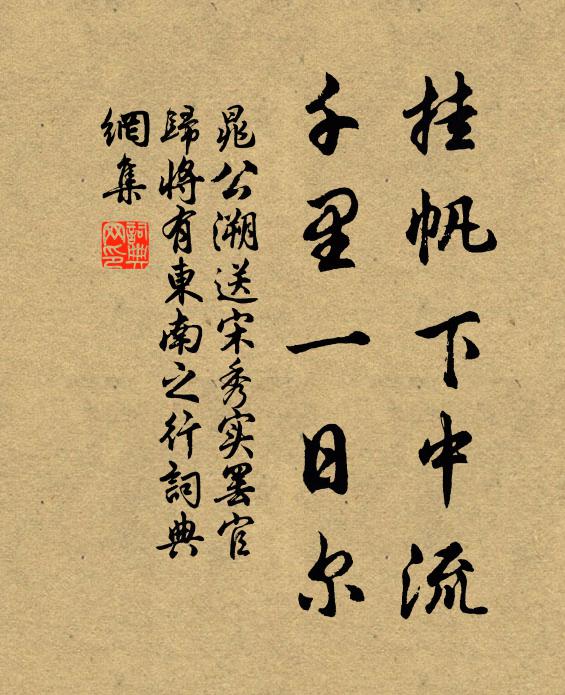 挂帆下中流
千里一日尔
晁公溯送宋秀实罢官
歸將有東南之行詞典
網集
詞典网印